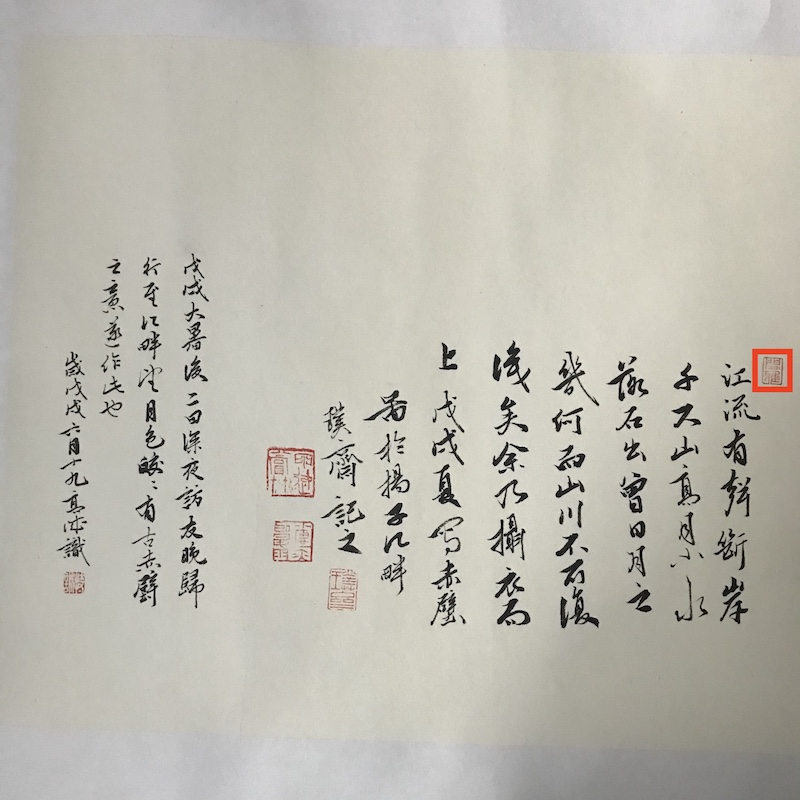 江流有聲斷岸
千尺山高月小水
落石出曾日月之
幾何而山川不可復
識矣余乃攝衣而
上 戊戌夏寫赤壁
圖於揚子江畔
璞齋記之
戊戌大暑後二日深夜訪友晚歸
行至江畔望月色皎〻有古赤壁
之意遂作此也
歲戊戌六月十九 識